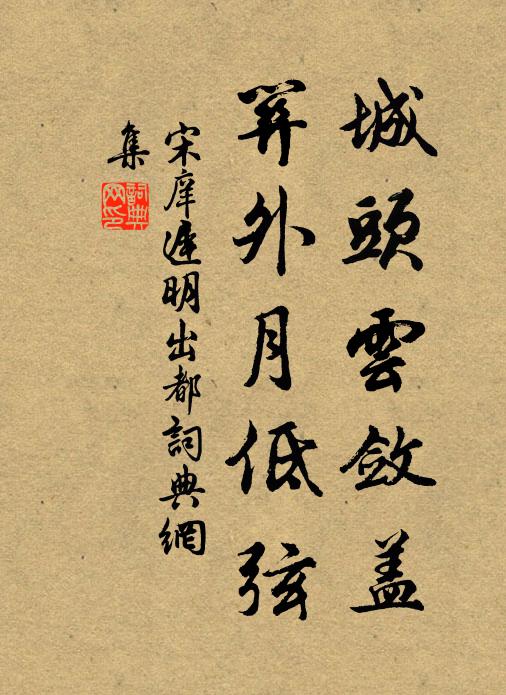 城頭雲斂盖
外月低弦
宋庠遲明出都詞典網
集
詞典
网印